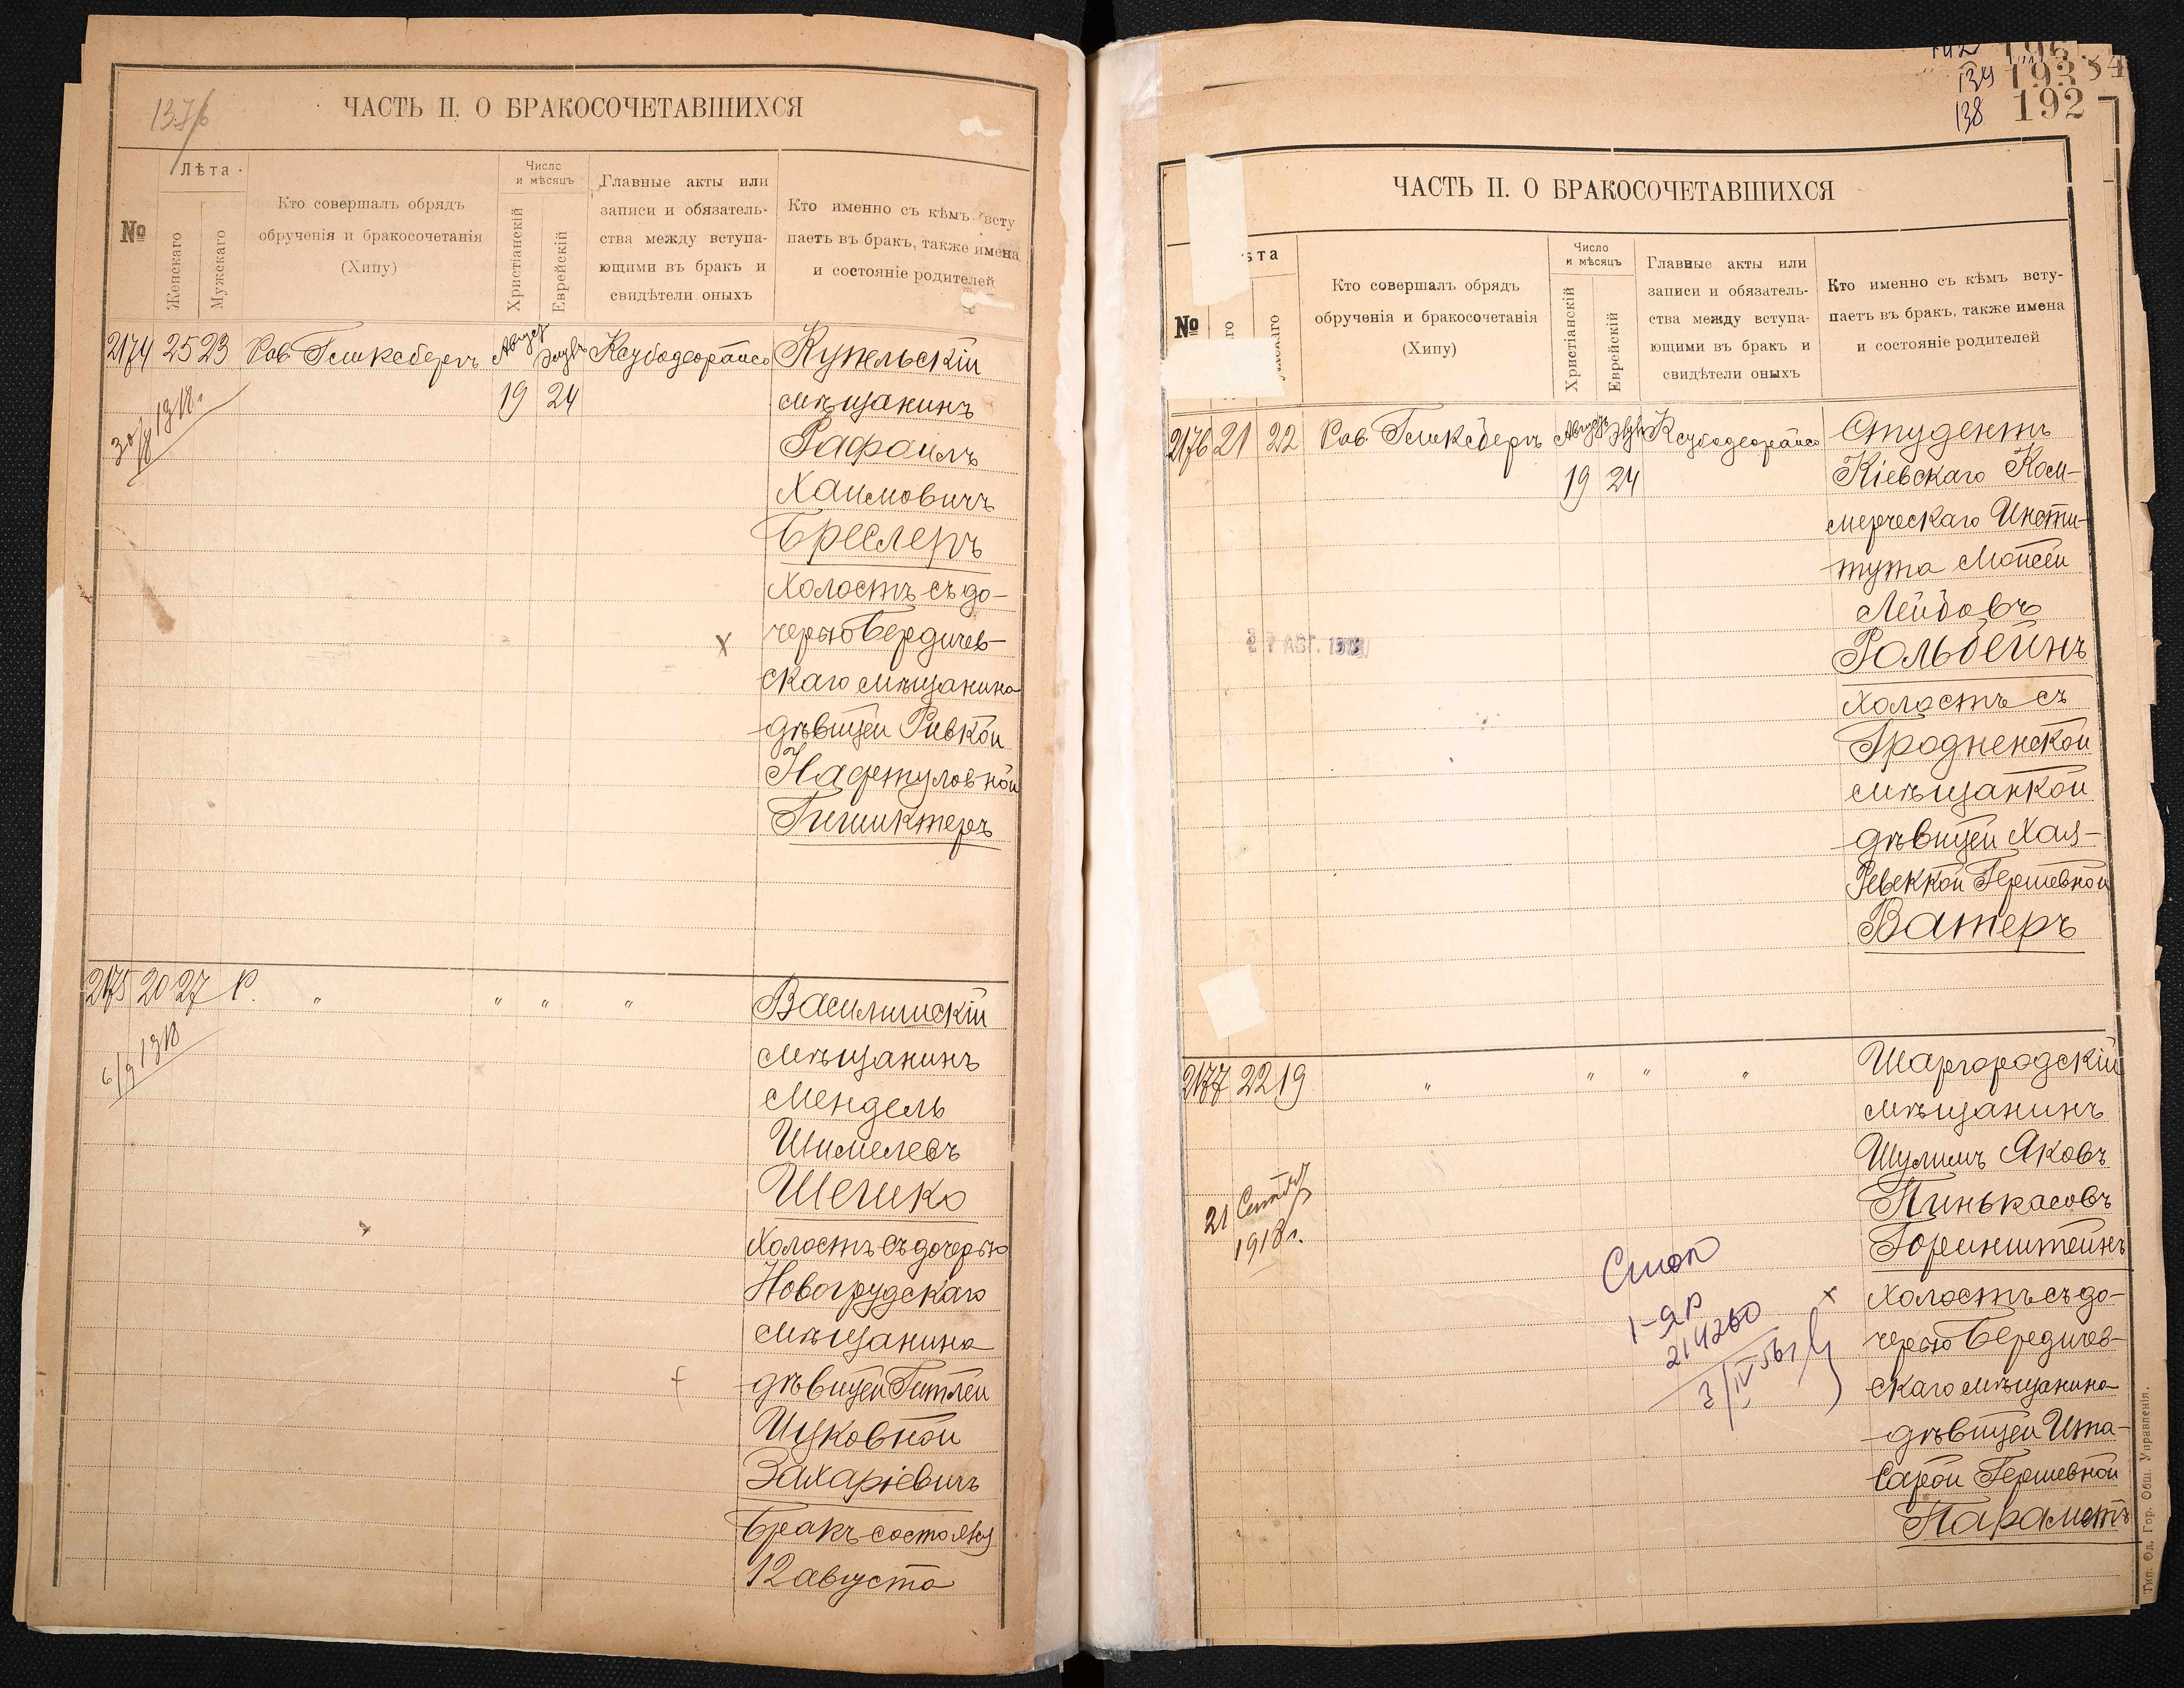 137б
ЧАСТЬ II. О БРАКОСОЧЕТАВШИХСЯ
№
Лѣта
Женскаго
Мужскаго
Кто совершалъ обрядъ
обрученія и бракосочетанія
(Хипу)
Число
и мѣсяцъ
Христіанскій
Еврейскій
Главные акты или
записи и обязатель-
ства между вступа-
ющими въ бракъ и
свидѣтели оныхъ
Кто именно съ кѣмъ всту
паетъ въ бракъ, также имена
и состояніе родителей
2174 25 23 Рав Гликсбергъ Август Элулъ Ксубодеорайсо Купельскій
19 24 мѣщанинъ
30/8 1918 г.
Рафаилъ
Хаимовичъ
Бреслеръ
Холостъ съ до-
черью Бердичев-
скаго мѣщанина
дѣвицей Ривкой
Нафтуловной
Гишиктеръ
2175 20 27 Р. " " " " Василишскій
6/9 1918
мѣщанинъ
Мендель
Шимелевъ
Шешко
Холостъ съ дочерью
Новогрудскаго
мѣщанина
дѣвицей Гитлей
Ицковной
Захаріевичъ
Бракъ состоялся
12 августа
139
138
193
192
84
ЧАСТЬ II. О БРАКОСОЧЕТАВШИХСЯ
№
ѣта
Кто совершалъ обрядъ
обрученія и бракосочетанія
(Хипу)
Число
и мѣсяцъ
Христіанскій
Еврейскій
Главные акты или
записи и обязатель-
ства между вступа-
ющими въ бракъ и
свидѣтели оныхъ
Кто именно съ кѣмъ всту-
паетъ въ бракъ, также имена
и состояніе родителей
2176 21 22 Рав Гликсбергъ Август Элулъ Ксубодеорайсо Студентъ
19 24 Кіевскаго Ком-
мерческаго Инсти-
тута Мойсей
Лейбовъ
Рольбейнъ
27 АВГ. 1918
холостъ съ
Гродненской
мѣщанкой
дѣвицей Хая-
Ревеккой Гершевной
Ватеръ
2177 22 19 " " " " Шаргородскій
мѣщанинъ
Шулимъ Яковъ
Пинькасовъ
Горинштейнъ
21 Сентября
1918 г.
Холостъ съ до-
черью Бердичев-
скаго мѣщанина
дѣвицей Ита-
Сарой Гершевной
Параметъ
1-ЯР
214260
3/IV 56г
Тип. Од. Гор. Общ. Управленія.